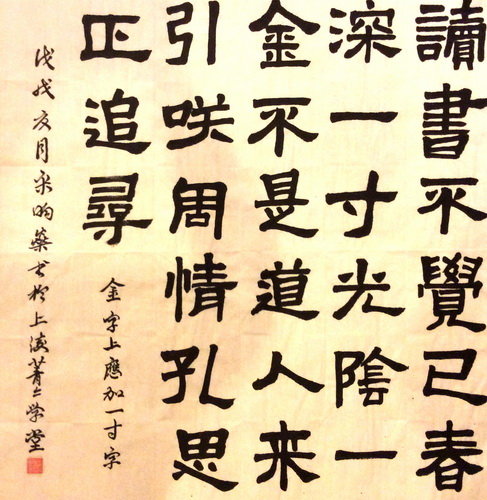 讀書不覺已春
深一寸光陰一
金不是道人来
引咲周情孔思
正追尋
金字上應加一寸字
戊戌亥月朱昀蓁书於上海菁仁学堂